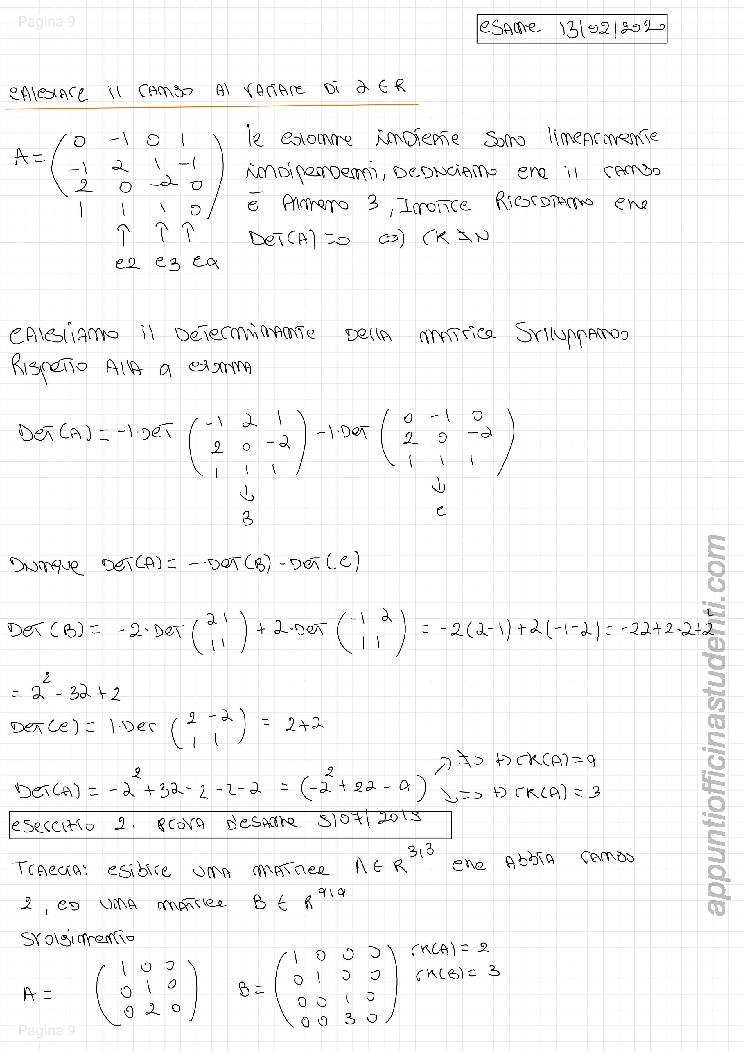 Pagina 9
esame 13/02/2020
calcolare il rango al variare di λ ∈ R
A = ( 0 -1 0 1
-1 2 1 -1
2 0 -2 0
1 1 1 0 )
↑ ↑ ↑
c2 c3 c4
le colonne indicate sono linearmente
indipendenti, deduciamo che il rango
è almeno 3, inoltre ricordiamo che
Det(A) = 0 ⇔ rk ≠ N
calcoliamo il determinante della matrice sviluppando
rispetto alla 4 colonna
Det(A) = -1·Det ( -1 2 1 / 2 0 -2 / 1 1 1 ) -1·Det ( 0 -1 0 / 2 0 -2 / 1 1 1 )
↓ ↓
B C
Dunque Det(A) = -Det(B) - Det(C)
Det(B) = -2·Det ( 2 1 / 1 1 ) + 2·Det ( -1 2 / 1 1 ) = -2(2-1) + 2(-1-2) = -2λ+2·2+λ²
= λ² - 3λ + 2
Det(C) = 1·Det ( 2 -2 / 1 1 ) = λ+2
Det(A) = -λ² + 3λ - 2 - λ - 2 = (-λ² + 2λ - 4) ↗ ≠0 ⇒ rk(A) = 4
↘ =0 ⇒ rk(A) = 3
esercizio 2. prova d'esame 5/07/2018
Traccia: esibire una matrice A ∈ R^3,3 che abbia rango
2, ed una matrice B ∈ R^4,4
Svolgimento
A = ( 1 0 0
0 1 0
0 2 0 )
B = ( 1 0 0 0
0 1 0 0
0 0 1 0
0 0 3 0 )
rk(A) = 2
rk(B) = 3
Pagina 9
appuntiofficinastudenti.com